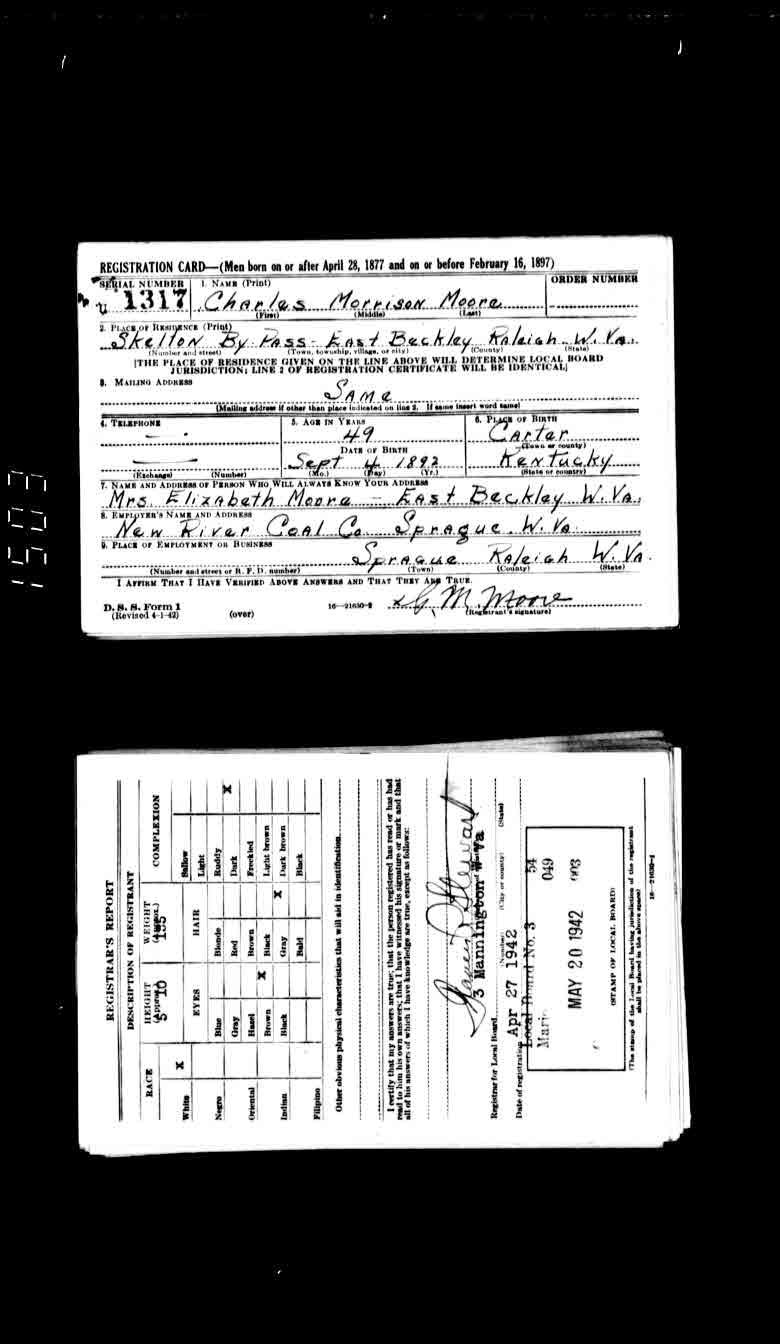 REGISTRATION CARD—(Men born on or after April 28, 1877 and on or before February 16, 1897)
SERIAL NUMBER
1. NAME (Print)
ORDER NUMBER
U 1317
Charles Morrison Moore
(First) (Middle) (Last)
2. PLACE OF RESIDENCE (Print)
Skelton By Pass - East Beckley Raleigh W. Va.
(Number and street) (Town, township, village, or city) (County) (State)
[THE PLACE OF RESIDENCE GIVEN ON THE LINE ABOVE WILL DETERMINE LOCAL BOARD
JURISDICTION; LINE 2 OF REGISTRATION CERTIFICATE WILL BE IDENTICAL]
3. MAILING ADDRESS
SAMe
[Mailing address if other than place indicated on line 2. If same insert word same]
4. TELEPHONE
5. AGE IN YEARS
6. PLACE OF BIRTH
49
Carter
(Town or county)
DATE OF BIRTH
Sept 4 1892
Kentucky
(Exchange) (Number)
(Mo.) (Day) (Yr.)
(State or country)
7. NAME AND ADDRESS OF PERSON WHO WILL ALWAYS KNOW YOUR ADDRESS
Mrs. Elizabeth Moore - East Beckley W. Va.
8. EMPLOYER'S NAME AND ADDRESS
New River Coal Co. Sprague. W. Va.
9. PLACE OF EMPLOYMENT OR BUSINESS
Sprague Raleigh W. Va.
(Number and street or R. F. D. number) (Town) (County) (State)
I AFFIRM THAT I HAVE VERIFIED ABOVE ANSWERS AND THAT THEY ARE TRUE.
D. S. S. Form 1
(Revised 4-1-42)
(over)
16—21630-2
M. Moore
(Registrant's signature)
1503
REGISTRAR'S REPORT
DESCRIPTION OF REGISTRANT
RACE
HEIGHT
(Approx.)
5 10
WEIGHT
(Approx.)
COMPLEXION
White X
EYES
HAIR
Sallow
Light
Negro
Blue
Blonde
Ruddy
Gray
Red
Dark X
Oriental
Hazel
Brown
Freckled
Brown X
Black
Light brown
Indian
Black
Gray X
Dark brown
Bald
Black
Filipino
Other obvious physical characteristics that will aid in identification
I certify that my answers are true; that the person registered has read or has had
read to him his own answers; that I have witnessed his signature or mark and that
all of his answers of which I have knowledge are true, except as follows:
Stewart
Registrar for Local Board
3 Mannington W Va
(Number) (City or county) (State)
Date of registration
Apr 27 1942
Local Board No. 3 54
049
MAY 20 1942 003
(STAMP OF LOCAL BOARD)
(The stamp of the Local Board having jurisdiction of the registrant
shall be placed in the above space)